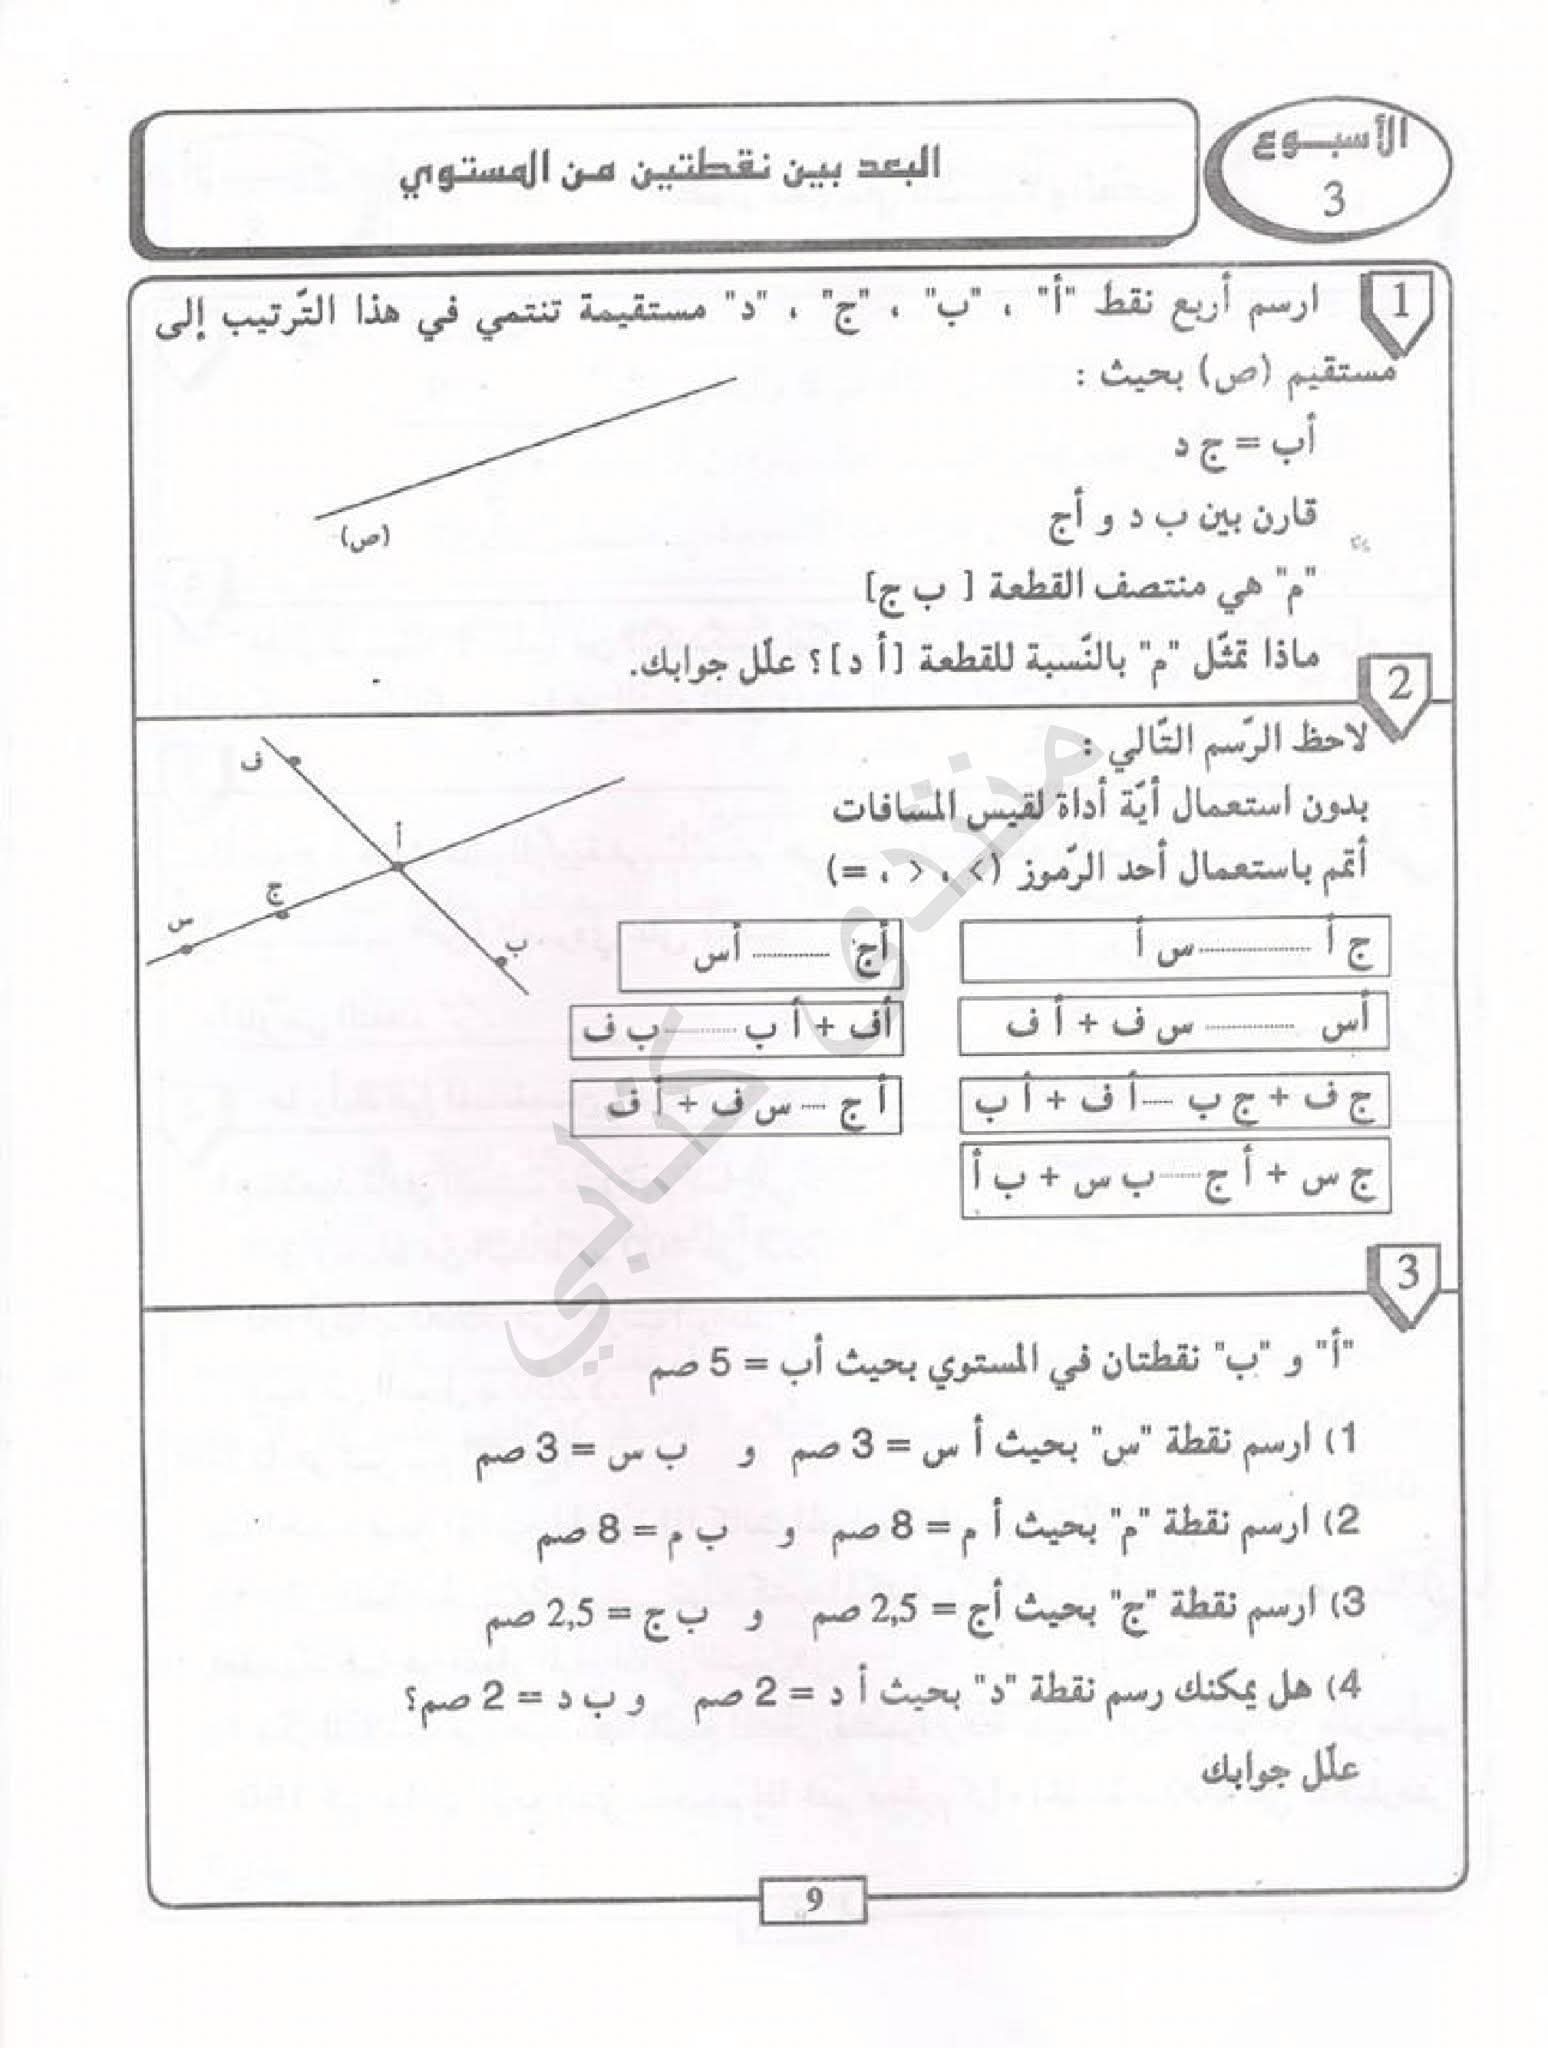 الأسبوع
3
البعد بين نقطتين من المستوي
1
ارسم أربع نقط "أ" ، "ب" ، "ج" ، "د" مستقيمة تنتمي في هذا التّرتيب إلى
مستقيم (ص) بحيث :
أب = ج د
قارن بين ب د و أج
"م" هي منتصف القطعة [ ب ج]
ماذا تمثّل "م" بالنّسبة للقطعة [أ د]؟ علّل جوابك.
(ص)
2
لاحظ الرّسم التّالي :
بدون استعمال أيّة أداة لقيس المسافات
أتمّم باستعمال أحد الرّموز (> ، < ، =)
ف
أ
ج
س
ب
ج أ ............ س أ
أج ............ أس
أس ............ س ف + أ ف
أف + أ ب ............ ب ف
ج ف + ج ب ..... أ ف + أ ب
أ ج ..... س ف + أ ف
ج س + أ ج ...... ب س + ب أ
3
"أ" و "ب" نقطتان في المستوي بحيث أب = 5 صم
1) ارسم نقطة "س" بحيث أ س = 3 صم و ب س = 3 صم
2) ارسم نقطة "م" بحيث أ م = 8 صم و ب م = 8 صم
3) ارسم نقطة "ج" بحيث أج = 2,5 صم و ب ج = 2,5 صم
4) هل يمكنك رسم نقطة "د" بحيث أ د = 2 صم و ب د = 2 صم؟
علّل جوابك
9
منتدى كتابي